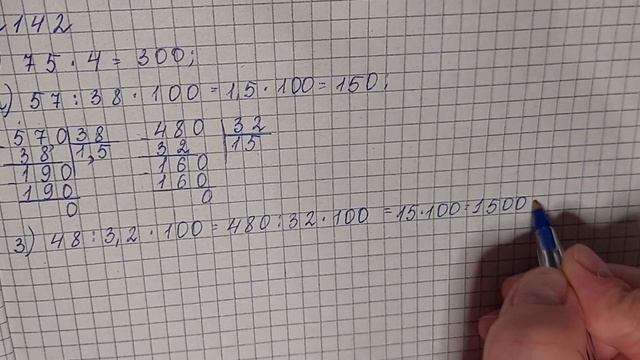 142
75 · 4 = 300;
2) 57 : 38 · 100 = 1,5 · 100 = 150;
570 38 480 32
38 1,5 32 15
190 160
190 160
0 0
3) 48 : 3,2 · 100 = 480 : 32 · 100 = 15 · 100 = 1500